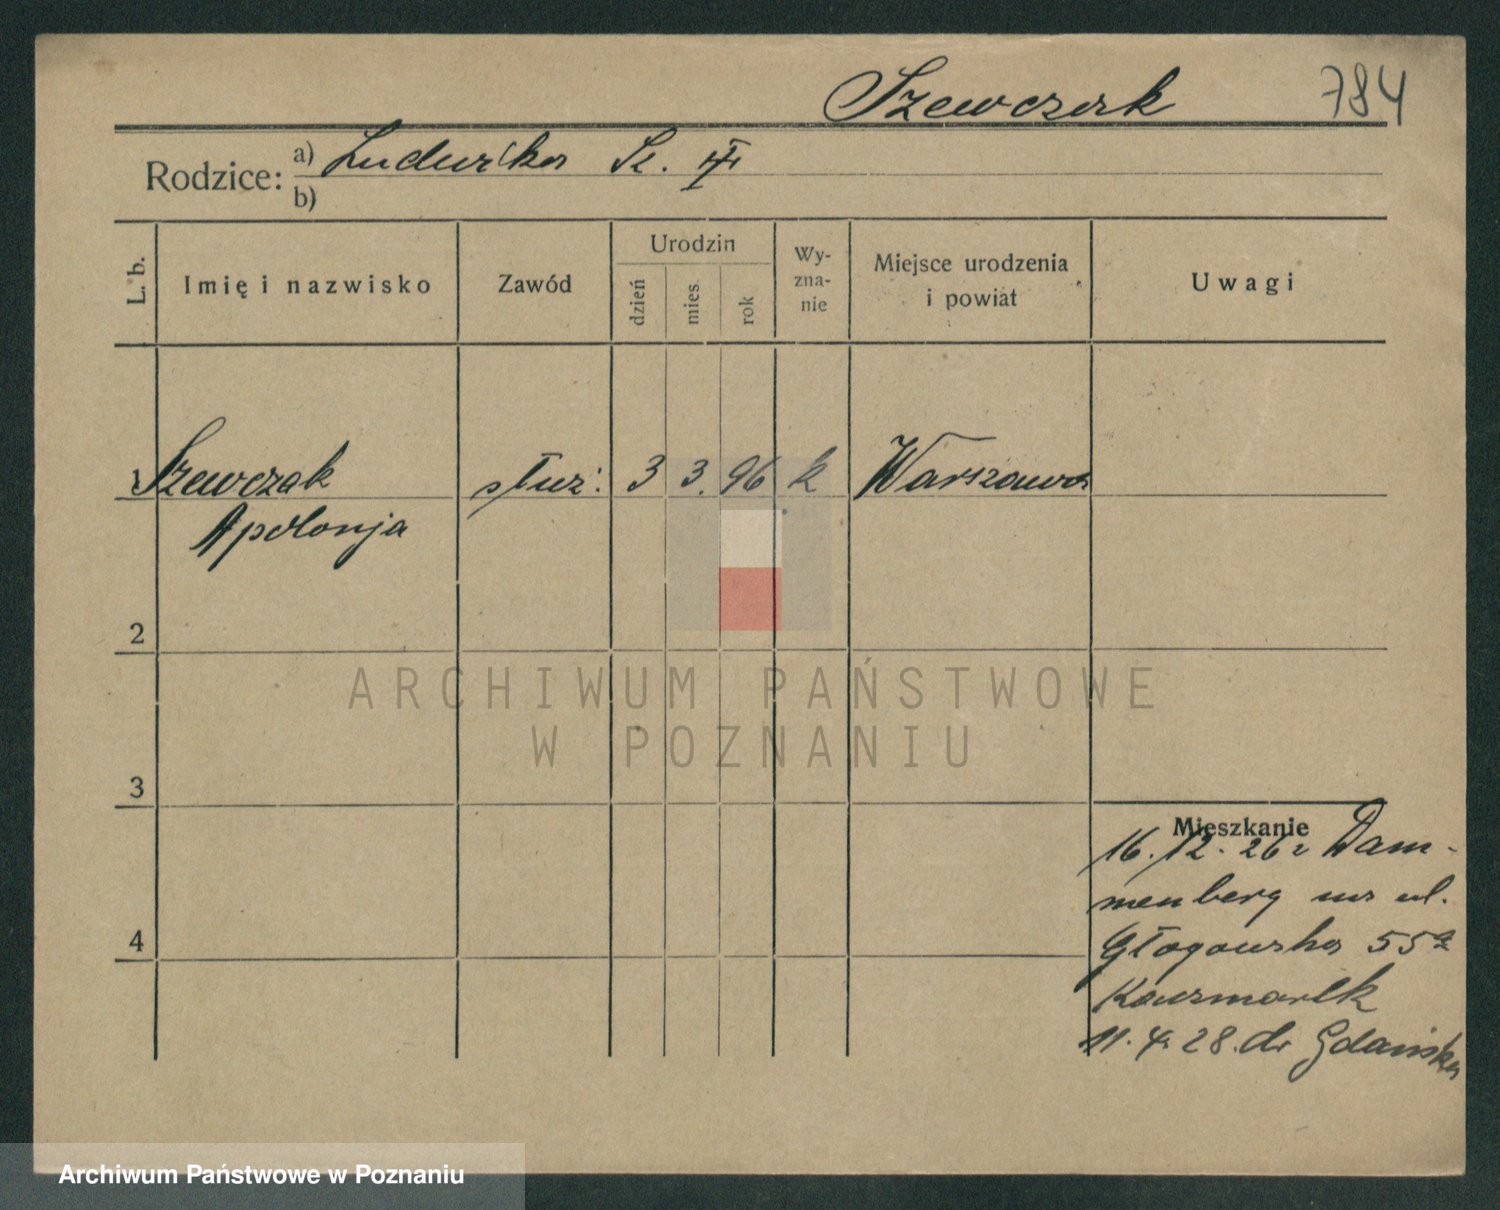 Szewczak 784
Rodzice: a) Ludwika Sz.
b)
L. b. Imię i nazwisko Zawód Urodzin dzień mies. rok Wy-zna-nie Miejsce urodzenia i powiat Uwagi
1 Szewczak służ. 3 3. 96 k Warszawa
Apolonja
2
3
4
Mieszkanie
16.12.26 r Dam-
menberg na ul.
Głogowska 55a
Kaczmarek
11.4.28. do Gdańska
ARCHIWUM PAŃSTWOWE
W POZNANIU
Archiwum Państwowe w Poznaniu